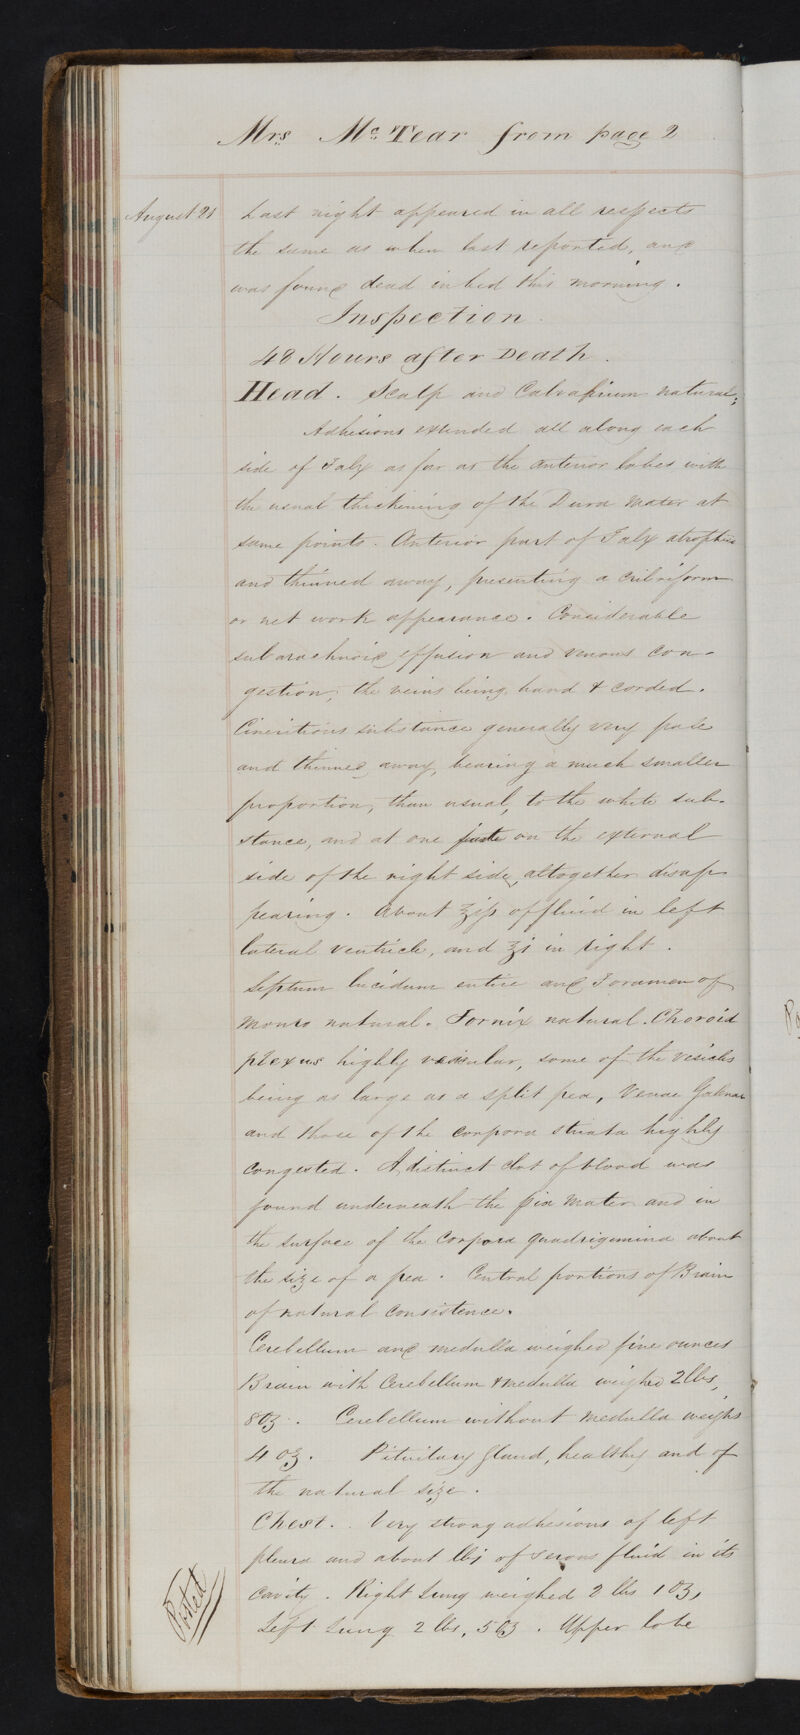 Mrs. Mc.Tear from page 2
August 21 Last night appeared in all respects
the same as when last reported, and
was found dead in bed this morning.
Inspection.
48 Hours after Death.
Head. Scalp and Calvarium natural;
Adhesions extended all along each
side of Falx as far as the anterior lobes with
the usual thickening of the Dura Mater at
some points. Anterior part of Falx atrophied
and thinned away, presenting a cribriform
or net work appearance. Considerable
subarachnoid effusion and venous con-
gestion, the veins being hard & corded.
Cineritious substance generally very pale
and thinned away, bearing a much smaller
proportion, than usual, to the white sub-
stance, and at one on the external
side of the right side, altogether disap
pearing. About ʒifs of fluid in left
lateral ventricle, and ʒi in right.
Septum lucidum entire and Foramen of
Monro natural. Fornix natural. Choroid
plexus highly vesicular, some of the vesicles
being as large as a split pea, Venae Galenae
and those of the corpora striata highly
congested. A distinct clot of blood was
found underneath the pia mater and in
the surface of the Corpora quadrigemina about
the size of a pea. Central portions of Brain
of natural consistence.
Cerebellum and medulla weighed five ounces
Brain with Cerebellum & medulla weighed 2 lbs,
8 oz. Cerebellum without medulla weighs
4 oz. Pituitary gland, healthy and of
the natural size.
Chest. Very strong adhesions of left
pleura and about lbj of serous fluid in its
cavity. Right Lung weighed 2 lbs 1 oz,
Left Lung 2 lbs, 5 oz. Upper lobe
Posted